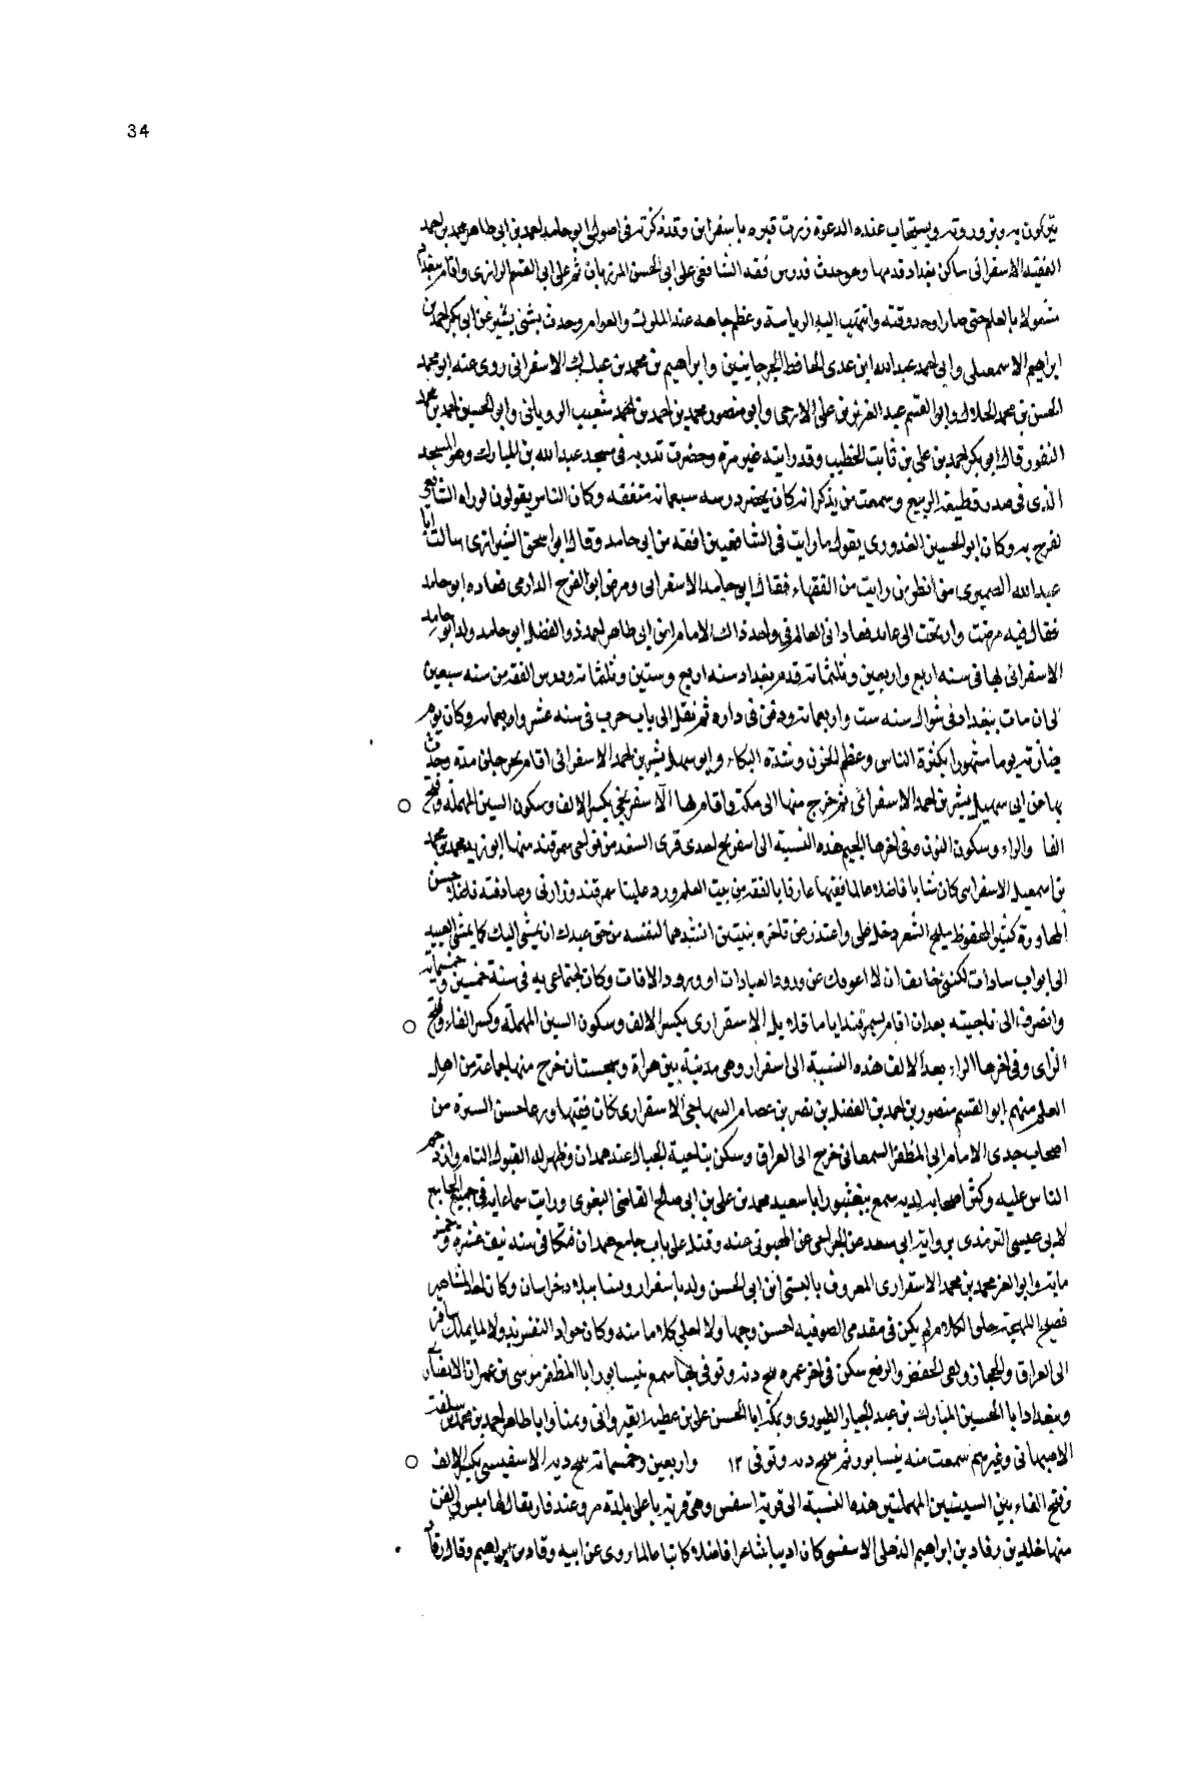 34
يتبركون به ويزورونه ويستجاب عنده الدعوة وزرت قبره باسفراين وقد ذكرته في اصولى ابو حامد احمد بن ابى طاهر محمد بن احمد
الفقيه الاسفرائى ساكن بغداد قدمها وهو حدث فدرس فقه الشافعى على ابى الحسن المرزبان ثم على ابى القسم الرازى واقام ببغداد
مشغولا بالعلم حتى صار اوحد وقته وانتهت اليه الرياسة وعظم جاهه عند الملوك والعوام وحدث بشئ يسير عن ابى بكر احمد بن
ابراهيم الاسمعيلى وابى احمد عبد الله ابن عدى الحافظ الجرجانيين وابراهيم بن محمد بن عبدك الاسفرائى روى عنه ابو محمد
الحسن بن محمد الخلال وابو القسم عبد العزيز بن على الازجى وابو منصور محمد بن احمد بن شعيب الرويانى وابو الحسين احمد بن محمد
النقور قال ابو بكر احمد بن على بن ثابت الخطيب وقد رايته غير مرة وحضرت تدريسه فى مسجد عبد الله بن المبارك وهو المسجد
الذى فى صدر قطيعة الربيع وسمعت من يذكر انه كان يحضر درسه سبعمائة متفقه وكان الناس يقولون لو راه الشافعى
لفرح به وكان ابو الحسين القدورى يقول ما رايت فى الشافعيين افقه من ابى حامد وقال ابو اسحق الشيرازى سالت ابا
عبد الله الصيمرى من انظر من رايت من الفقهاء فقال ابو حامد الاسفرائى ومرض ابو الفرج الدارمى فعاده ابو حامد
فقال فيه مرضت وارتحت الى عائد فعادنى العالم فى واحد ذاك الامام ابن ابى طاهر احمد ذو الفضل ابو حامد ولد ابو حامد
الاسفرائى بها فى سنة اربع واربعين وثلثمائة قدم بغداد سنة اربع وستين وثلثمائة ودرس الفقه من سنة سبعين
الى ان مات ببغداد فى شوال سنة ست واربعمائة ودفن فى داره ثم نقل الى باب حرب فى سنة عشر واربعمائة وكان يوم
جنازته يوما مشهورا بكثرة الناس وعظم الحزن وشدة البكاء وابو سهل بشر بن احمد الاسفرائى اقام بجرجان مدة وحدث
بها عن ابى سهل بشر بن احمد الاسفرائى ثم خرج منها الى مكة واقام بها الاسفرنجى بكسر الالف وسكون السين المهملة وفتح
الفا والراء وسكون النون وفى اخرها الجيم هذه النسبة الى اسفرنج احدى قرى السغد من نواحى سمرقند منها ابو زيد محمد بن محمد
بن اسمعيل كان شابا فاضلا عالما فقيها عارفا بالفقه من بيت العلم ورد علينا سمرقند وزارنى وصادفته فاضلا حسن
المحاورة كثير المحفوظ مليح الشعر دخل على واعتذر عن تاخره ببيتين انشدهما لنفسه من حق عبدك ان يمشى اليك كما يمشى العبيد
الى ابواب سادات لكننى خائف ان لا اعوقك عن ورود العبادات او ورود الافات وكان اجتماعى به فى سنة خمسين وخمسمائة
وانصرف الى ناحيته بعد ان اقام بسمرقند اياما قلايل الاسفزارى بكسر الالف وسكون السين المهملة وكسر الفاء وفتح
الزاى وفى اخرها الراء بعد الالف هذه النسبة الى اسفزار وهى مدينة بين هراة وسجستان خرج منها جماعة من اهل
العلم منهم ابو القسم منصور بن احمد بن الفضل بن نصر بن عصام الاسفزارى كان فقيها ورعا حسن السيرة من
اصحاب جدى الامام ابى المظفر السمعانى خرج الى العراق وسكن بناحية الجبال عند همدان وظهر له القبول التام وازدحم
الناس عليه وكثر اصحابه لديه سمع ببغشور ابا سعيد محمد بن على بن ابى صالح القاضى البغوى ورايت سماعه فى جميع الجامع
لابى عيسى الترمذى بروايته ابى سعد عن الجراحى عن المحبوبى عنه وقتل على باب جامع همدان فتكا فى سنة نيف عشرة وخمس
مايته وابو العز محمد بن محمد الاسفزارى المعروف بالبستى ابن ابى الحسن ولد باسفزار ونشا ببلاد خراسان وكان احد المشاهير
فصيح اللهجة حلو الكلام لم يكن فى مقدمى الصوفيه احسن وجها ولا احلى كلاما منه وكان جواد النفس ولا لما يملك سافر
الى العراق والحجاز ولقى الخفض والرفع سكن فى اخر عمره ديه وتوفى بها سمع بنيسابور ابا المظفر موسى بن عمران الانصارى
وببغداد ابا الحسين المبارك بن عبد الجبار الطيورى وبمكة ابا الحسن على بن القيروانى وبمنا وابا طاهر احمد بن محمد بن سلفة
الاصبهانى وغيرهم سمعت منه بنيسابور وثم ديه وتوفى ١٢ واربعين وخمسمائة ديه الاسفيسى بكسر الالف
وفتح الفاء بين السينين المهملتين هذه النسبة الى قرية اسفس وهى قرية باعلى بلدة مرو عند فاز يقال لها
منها خالد بن رقاد بن ابراهيم الذهلى الاسفسى كان اديبا شاعرا فاضلا كاتبا عالما روى عن ابيه وقاد بن ابراهيم وقال